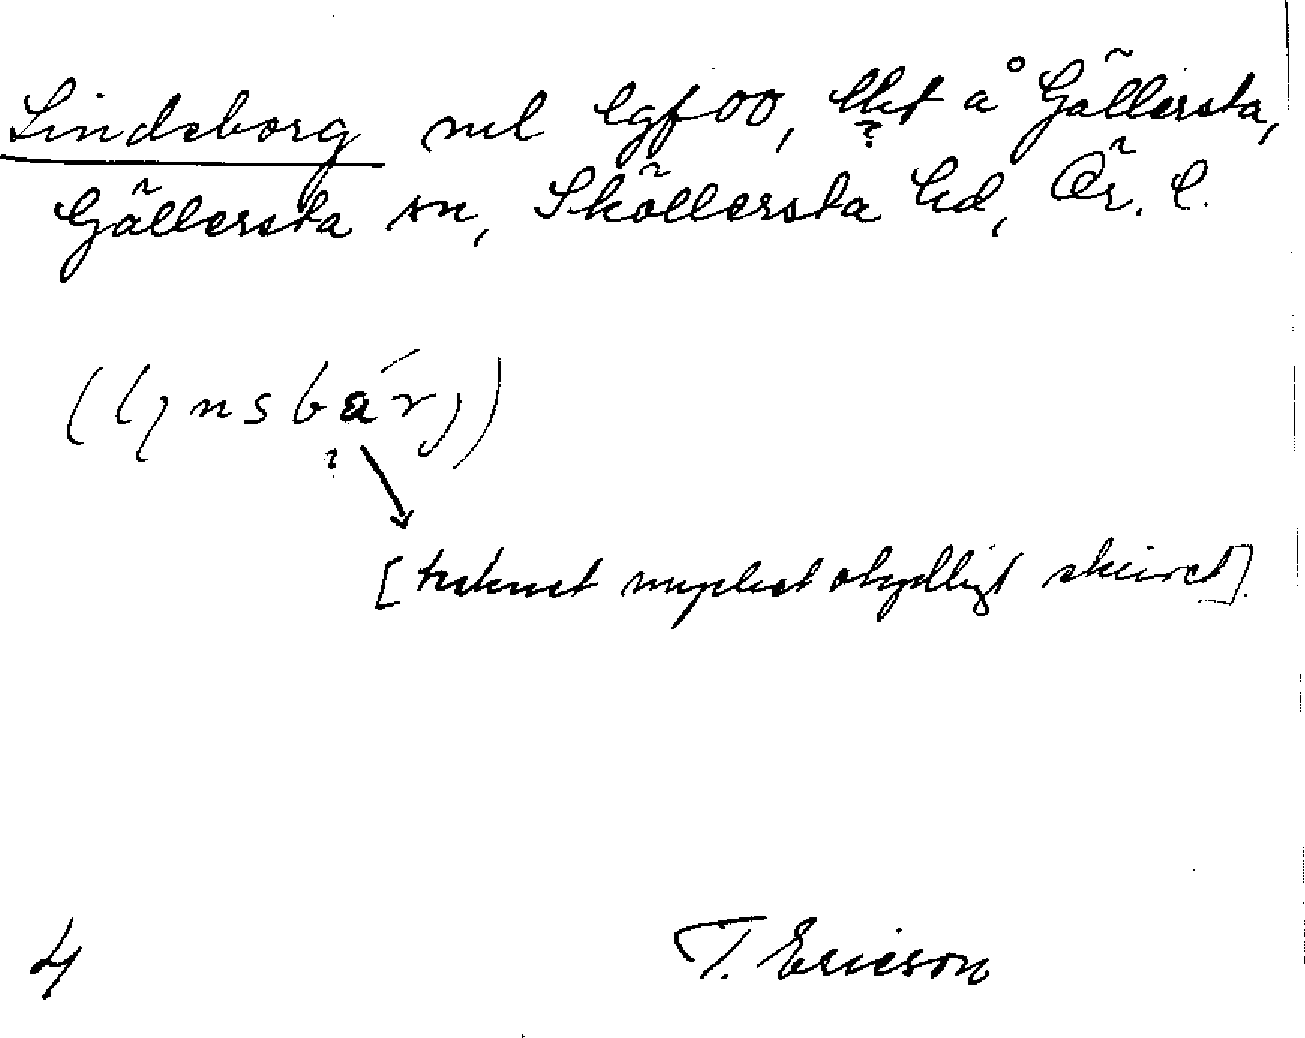 Lindeborg nel lgf 00, lht å Gällersta,
?
Gällersta sn, Sköllersta hd, Ör. l.
?
[tecknet mycket otydligt skrivet]
4 T. Ericson